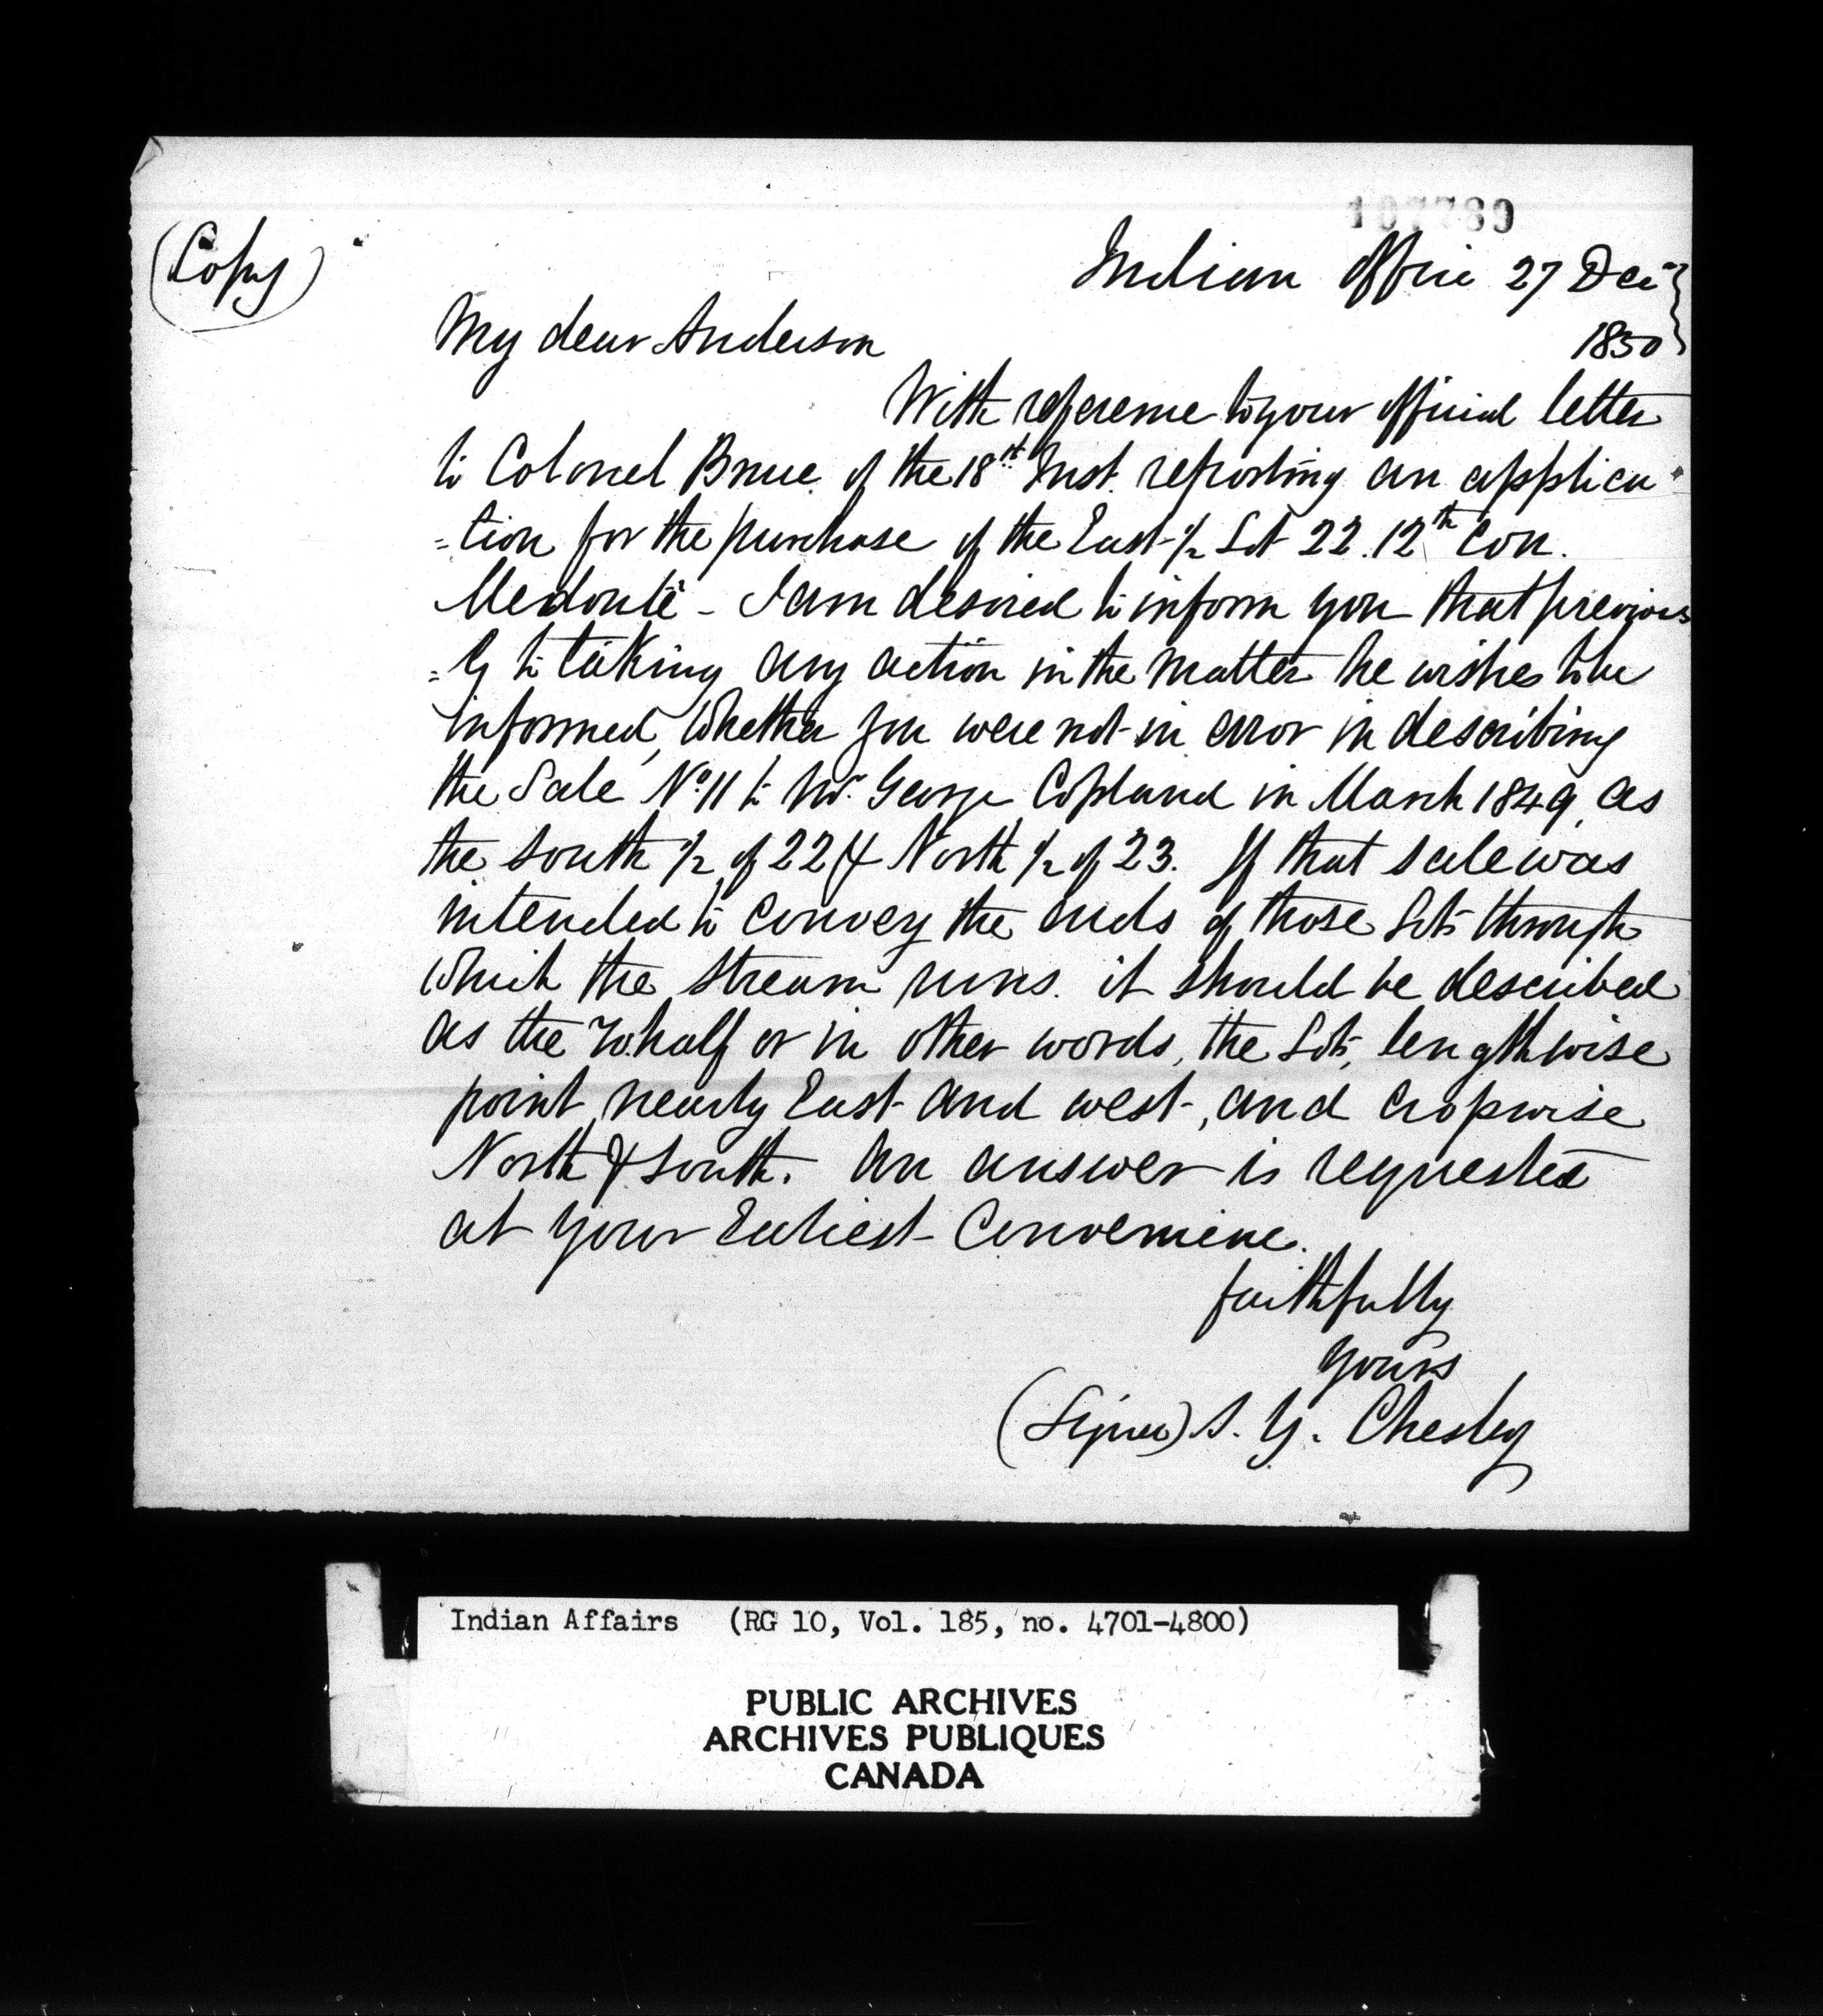 107789
(Copy)
Indian Office 27 Dec
1850
My dear Anderson
With reference to your official letter
to Colonel Bruce of the 18th Inst. reporting an applica
=tion for the purchase of the East 1/2 Lot 22. 12th Con.
Medonte - I am desired to inform you that previous
=ly to taking any action in the matter he wishes to be
informed, whether you were not in error in describing
the Sale No 11 to Mr. George Copland in March 1849, as
the South 1/2 of 22 & North 1/2 of 23. If that sale was
intended to convey the ends of those Lots through
which the stream runs. it should be described
as the W. half or in other words, the Lots, lengthwise
point, nearly East and west, and cropwise
North & South. An answer is requested
at your Earliest Convenience.
faithfully
yours
(Signed) S. Y. Chesley
Indian Affairs (RG 10, Vol. 185, no. 4701-4800)
PUBLIC ARCHIVES
ARCHIVES PUBLIQUES
CANADA